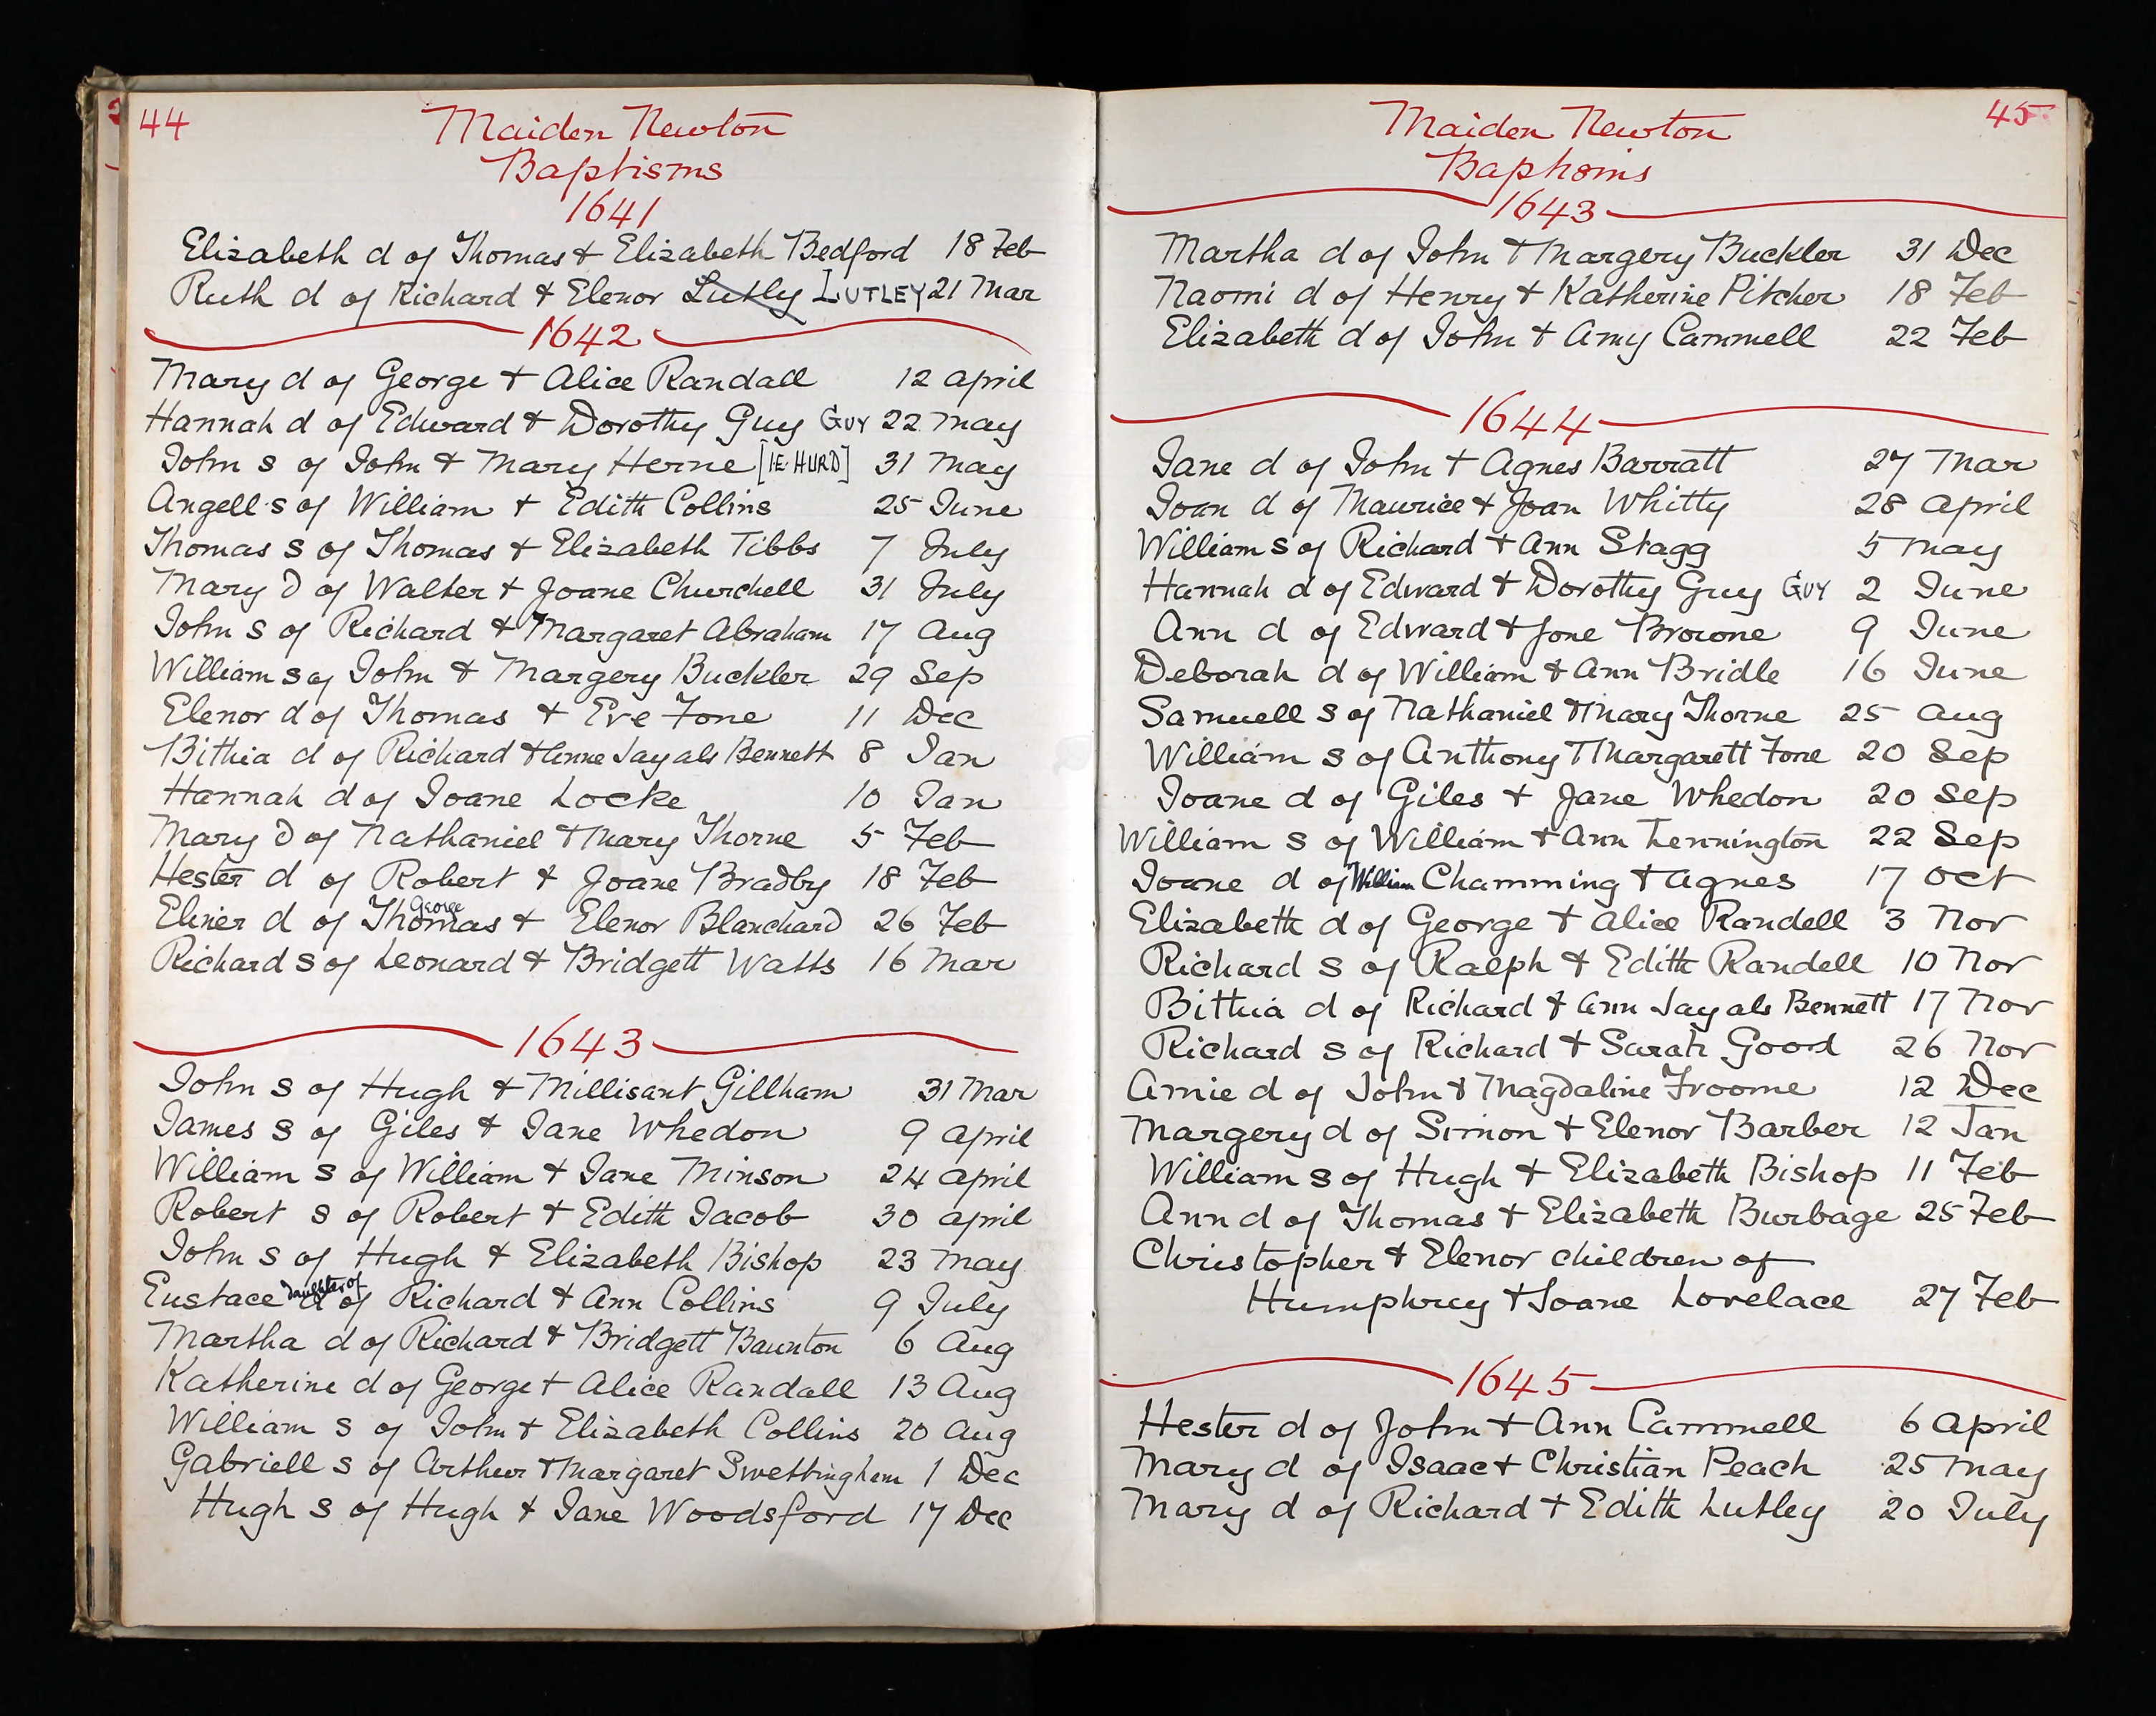 44
Maiden Newton
Baptisms
1641
Elizabeth d of Thomas + Elizabeth Bedford 18 Feb
Ruth d of Richard + Elenor Lutly LUTLEY 21 Mar
1642
Mary d of George + Alice Randall 12 April
Hannah d of Edward + Dorothy Guy GUY 22 May
John s of John + Mary Herne [IE. HURD] 31 May
Angell s of William + Edith Collins 25 June
Thomas s of Thomas + Elizabeth Tibbs 7 July
Mary d of Walter + Joane Churchell 31 July
John s of Richard + Margaret Abraham 17 Aug
William s of John + Margery Buckler 29 Sep
Elenor d of Thomas + Eve Fone 11 Dec
Bithia d of Richard + Anne Jay als Bennett 8 Jan
Hannah d of Joane Locke 10 Jan
Mary d of Nathaniel + Mary Thorne 5 Feb
Hester d of Robert + Joane Bradby 18 Feb
Eliner d of Thomas George + Elenor Blanchard 26 Feb
Richard s of Leonard + Bridgett Watts 16 Mar
1643
John s of Hugh + Millisant Gillham 31 Mar
James s of Giles + Jane Whedon 9 April
William s of William + Jane Minson 24 April
Robert s of Robert + Edith Jacob 30 April
John s of Hugh + Elizabeth Bishop 23 May
Eustace daughter of d of Richard + Ann Collins 9 July
Martha d of Richard + Bridgett Baunton 6 Aug
Katherine d of George + Alice Randall 13 Aug
William s of John + Elizabeth Collins 20 Aug
Gabriell s of Arthur + Margaret Swettingham 1 Dec
Hugh s of Hugh + Jane Woodsford 17 Dec
45
Maiden Newton
Baptisms
1643
Martha d of John + Margery Buckler 31 Dec
Naomi d of Henry + Katherine Pitcher 18 Feb
Elizabeth d of John + Amy Cammell 22 Feb
1644
Jane d of John + Agnes Barratt 27 Mar
Joan d of Maurice + Joan Whitty 28 April
William s of Richard + Ann Stagg 5 May
Hannah d of Edward + Dorothy Guy GUY 2 June
Ann d of Edward + Jone Browne 9 June
Deborah d of William + Ann Bridle 16 June
Samuell s of Nathaniel + Mary Thorne 25 Aug
William s of Anthony + Margarett Fone 20 Sep
Joane d of Giles + Jane Whedon 20 Sep
William s of William + Ann Lennington 22 Sep
Joane d of William Chamming + Agnes 17 Oct
Elizabeth d of George + Alice Randell 3 Nov
Richard s of Ralph + Edith Randell 10 Nov
Bithia d of Richard + Ann Jay als Bennett 17 Nov
Richard s of Richard + Sarah Good 26 Nov
Amie d of John + Magdaline Froome 12 Dec
Margery d of Simon + Elenor Barber 12 Jan
William s of Hugh + Elizabeth Bishop 11 Feb
Ann d of Thomas + Elizabeth Burbage 25 Feb
Christopher + Elenor children of
Humphrey + Joane Lovelace 27 Feb
1645
Hester d of John + Ann Cammell 6 April
Mary d of Isaac + Christian Peach 25 May
Mary d of Richard + Edith Lutley 20 July